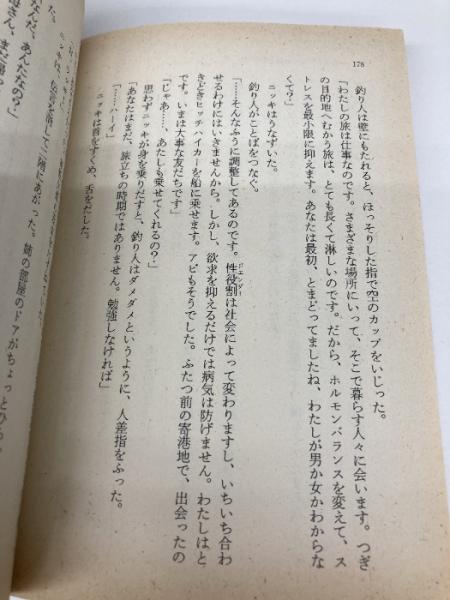 178
釣り人は壁にもたれると、ほっそりした指で空のカップをいじった。
「わたしの旅は仕事なのです。さまざまな場所にいって、そこで暮らす人々に会います。つぎ
の目的地へむかう旅は、とても長くて淋しいのです。だから、ホルモンバランスを変えて、ス
トレスを最小限に抑えます。あなたは最初、とまどってましたね、わたしが男か女かわからな
くて？」
ニッキはうなずいた。
釣り人がことばをつなぐ。
「……そんなふうに調整してあるのです。性役割は社会によって変わりますし、いちいち合わ
ジェンダー
せるわけにはいきませんから。しかし、欲求を抑えるだけでは病気は防げません。わたしはと
きどきヒッチハイカーを船に乗せます。アビもそうでした。ふたつ前の寄港地で、出会ったの
です。いまは大事な友だちです」
「じゃあ……、あたしも乗せてくれるの？」
思わずニッキが身を乗りだすと、釣り人はダメダメというように、人差指をふった。
「あなたはまだ、旅立ちの時期ではありません。勉強しなければ」
「……ハーイ」
ニッキは首をすくめ、舌をだした。
た。
隅にあがった。姉の部屋のドアがちょっとひら
な、あんたなの？」